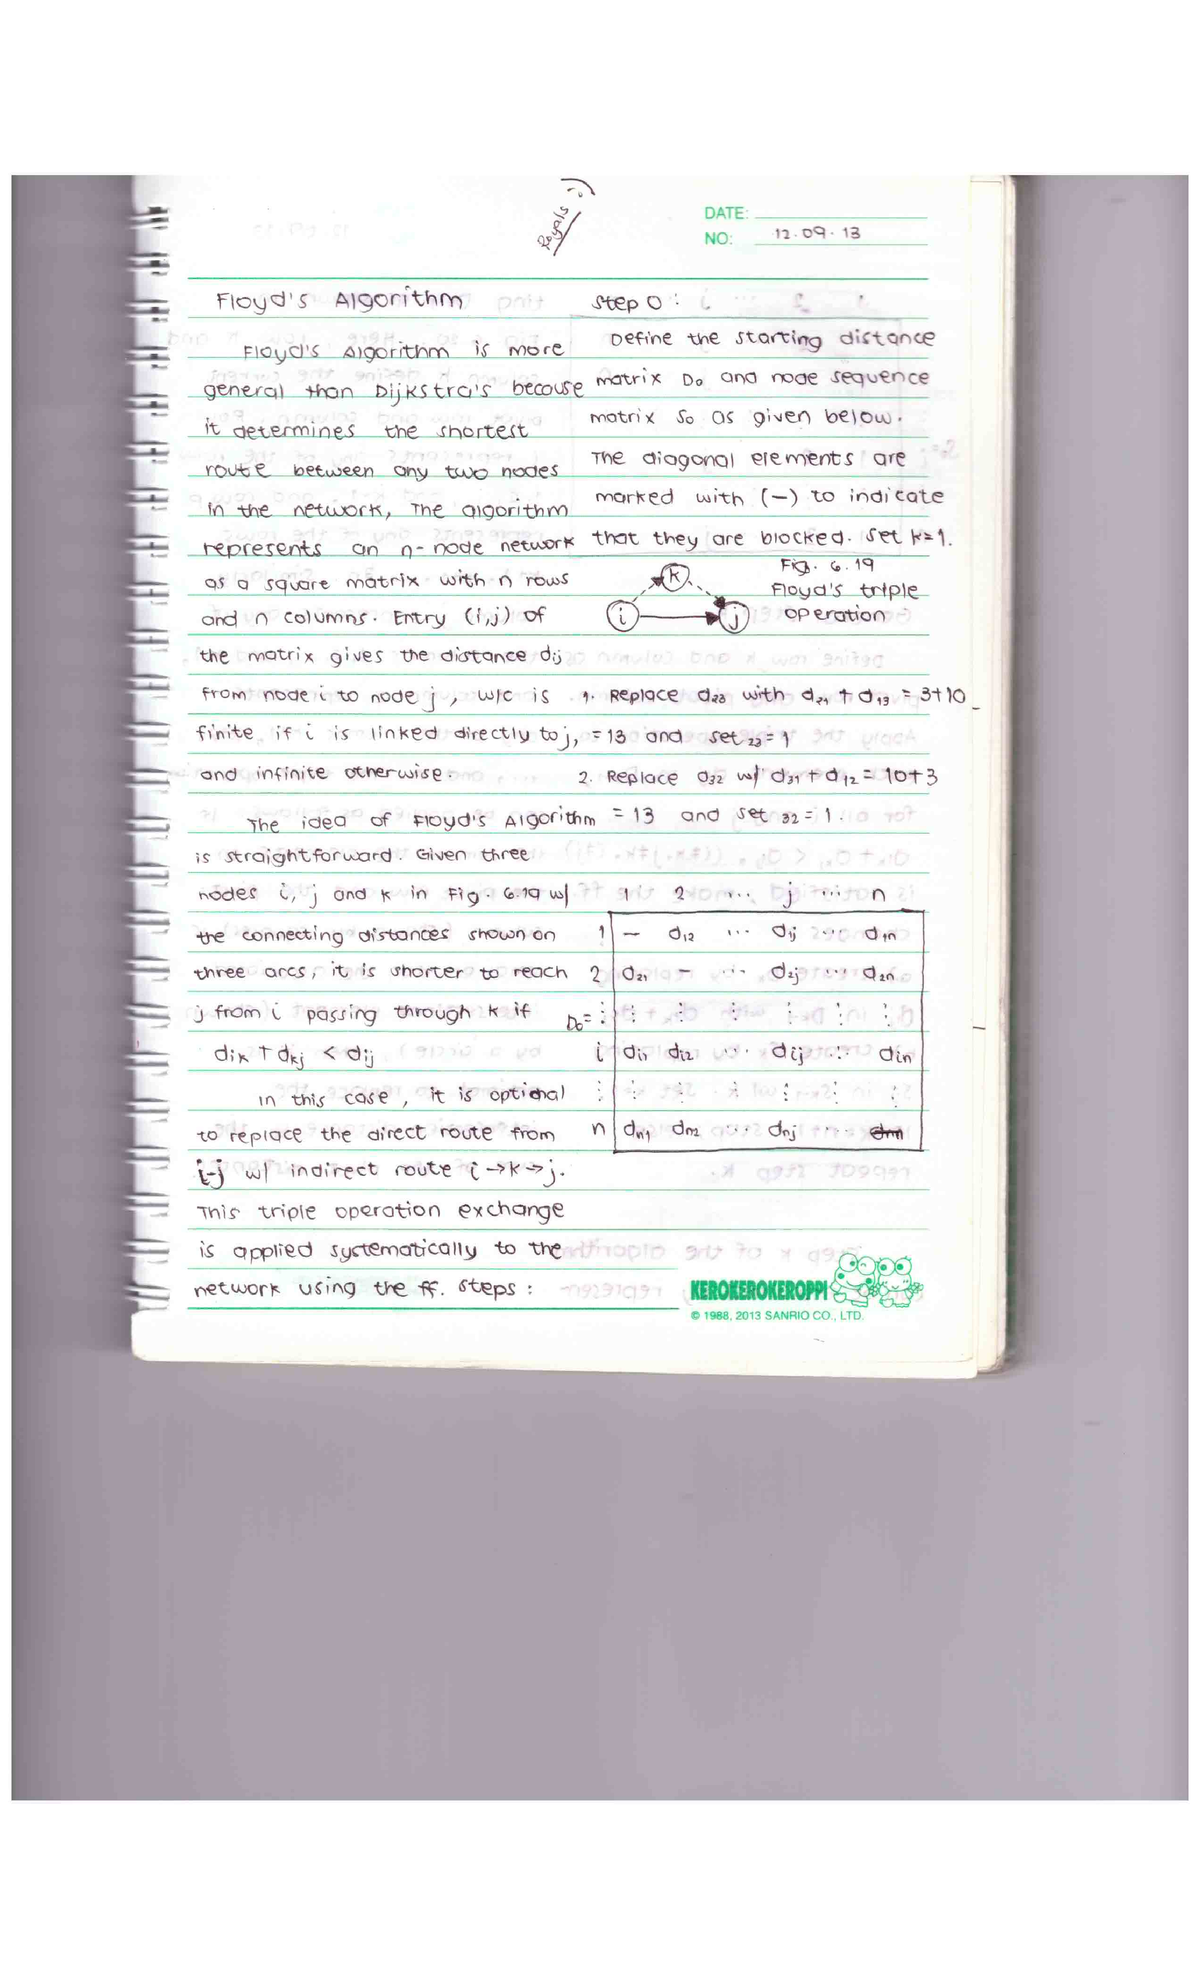 Royals :)
DATE:
NO: 12.09.13
Floyd's Algorithm
Floyd's Algorithm is more
general than Dijkstra's because
it determines the shortest
route between any two nodes
in the network, The algorithm
represents an n-node network
as a square matrix with n rows
and n columns. Entry (i,j) of
the matrix gives the distance dij
from node i to node j, w/c is
finite if i is linked directly to j,
and infinite otherwise.
The idea of Floyd's Algorithm
is straightforward. Given three
nodes i, j and k in Fig. 6.19 w/
the connecting distances shown on
three arcs, it is shorter to reach
j from i passing through k if
dik + dkj < dij
In this case, it is optional
to replace the direct route from
i-j w/ indirect route i→k→j.
This triple operation exchange
is applied systematically to the
network using the ff. steps:
Step 0:
Define the starting distance
matrix D0 and node sequence
matrix S0 as given below.
The diagonal elements are
marked with (-) to indicate
that they are blocked. Set k=1.
Fig. 6.19
Floyd's triple
operation
i k j
1. Replace d23 with d21 + d13 = 3+10
= 13 and set 23 = 1
2. Replace d32 w/ d31 + d12 = 10+3
= 13 and set 32 = 1.
1 2 ... j ... n
1 - d12 ... dij ... d1n
2 d21 - ... d2j ... d2n
D0= ⋮ ⋮ ⋮ ⋮ ⋮ ⋮
i di1 di2 ... dij ... din
⋮ ⋮ ⋮ ⋮ ⋮ ⋮
n dn1 dn2 ... dnj ...
KEROKEROKEROPPI
© 1988, 2013 SANRIO CO., LTD.